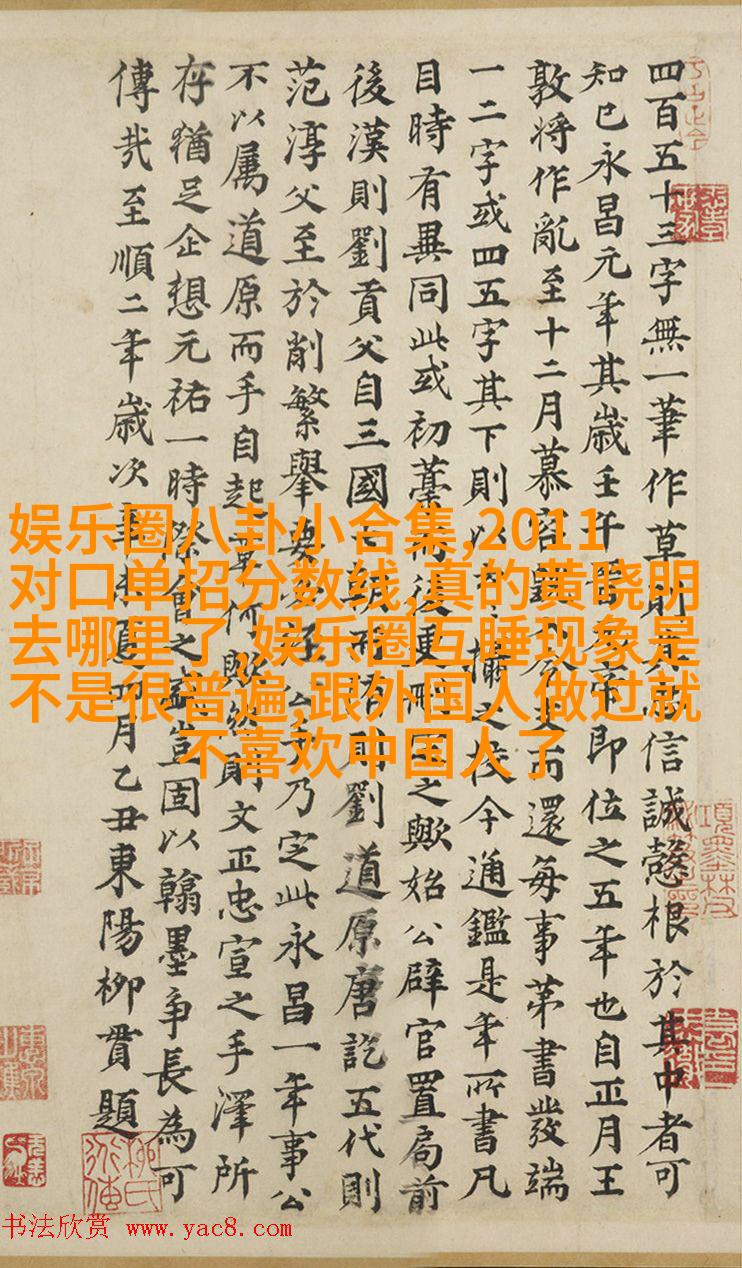 四百五十三字無一筆作草則其忠信誠慤根於其中者可
知已永昌元年其歲壬午晉元帝即位之五年也自正月王
敦將作亂至十二月慕容 而還每事第書發端
一二字或四五字其下則以 攝之校今通鑑是年所書凡
目時有異同此或初藁而後更刪定之歟始公辟官置局前
後漢則劉貢父自三國七朝而隋則劉道原唐訖五代則
范淳父至於削繁舉要必經公手乃定此永昌一年事公
不以属道原而手自起草何歟然則文正忠宣之手澤所
存猶足企想元祐一時際會之盛豈固以翰墨爭長為可
傳哉至順二年歲次辛未夏四月乙丑東陽柳貫題
娱乐圈八卦小合集,2011
对口单招分数线,真的黄晓明
去哪里了 娱乐圈互睡现象是
不是很普遍,跟外国人做过就
不喜欢中国人了
书法欣赏 www.yac8.com